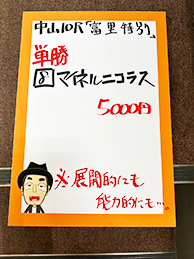 中山10R「富里特別」
単勝
⑧マイネルニコラス
5000円
※展開的にも
能力的にも…。